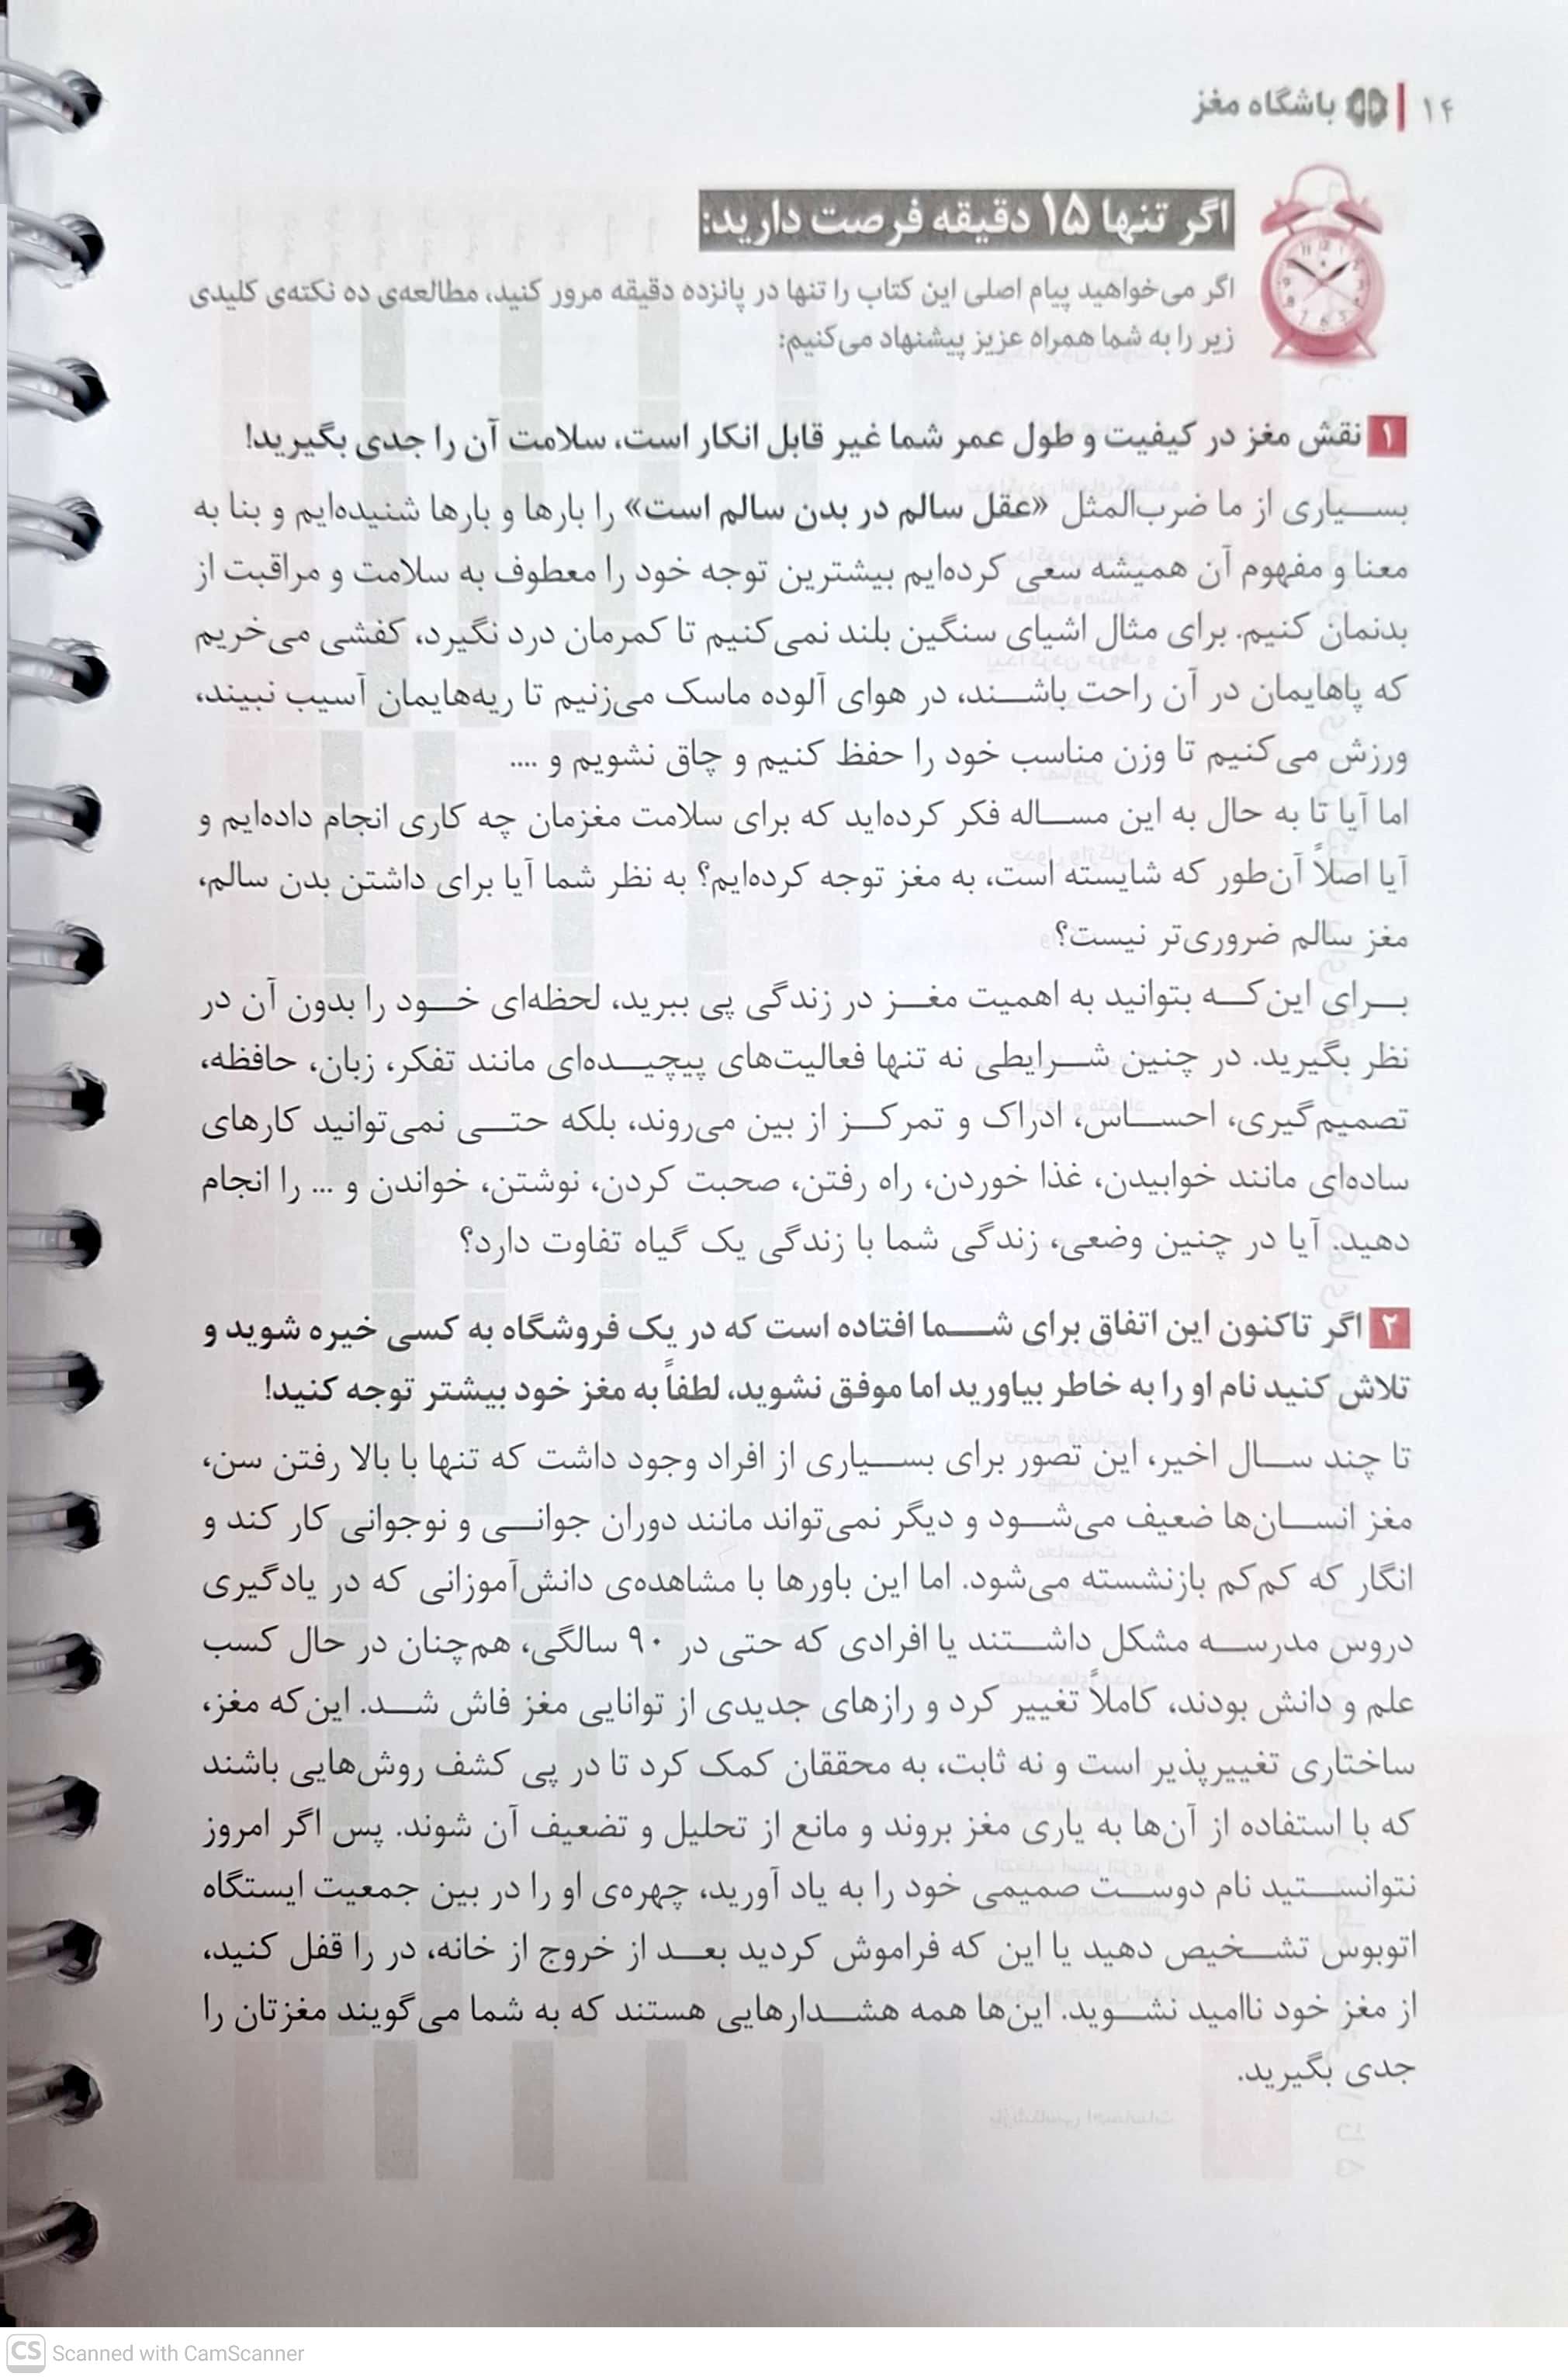 ۱۴ | باشگاه مغز
اگر تنها ۱۵ دقیقه فرصت دارید:
اگر می‌خواهید پیام اصلی این کتاب را تنها در پانزده دقیقه مرور کنید، مطالعه‌ی ده نکته‌ی کلیدی
زیر را به شما همراه عزیز پیشنهاد می‌کنیم:
۱ نقش مغز در کیفیت و طول عمر شما غیر قابل انکار است، سلامت آن را جدی بگیرید!
بسیاری از ما ضرب‌المثل «عقل سالم در بدن سالم است» را بارها و بارها شنیده‌ایم و بنا به
معنا و مفهوم آن همیشه سعی کرده‌ایم بیشترین توجه خود را معطوف به سلامت و مراقبت از
بدنمان کنیم. برای مثال اشیای سنگین بلند نمی‌کنیم تا کمرمان درد نگیرد، کفشی می‌خریم
که پاهایمان در آن راحت باشند، در هوای آلوده ماسک می‌زنیم تا ریه‌هایمان آسیب نبیند،
ورزش می‌کنیم تا وزن مناسب خود را حفظ کنیم و چاق نشویم و ....
اما آیا تا به حال به این مساله فکر کرده‌اید که برای سلامت مغزمان چه کاری انجام داده‌ایم و
آیا اصلاً آن‌طور که شایسته است، به مغز توجه کرده‌ایم؟ به نظر شما آیا برای داشتن بدن سالم،
مغز سالم ضروری‌تر نیست؟
برای این‌که بتوانید به اهمیت مغز در زندگی پی ببرید، لحظه‌ای خود را بدون آن در
نظر بگیرید. در چنین شرایطی نه تنها فعالیت‌های پیچیده‌ای مانند تفکر، زبان، حافظه،
تصمیم‌گیری، احساس، ادراک و تمرکز از بین می‌روند، بلکه حتی نمی‌توانید کارهای
ساده‌ای مانند خوابیدن، غذا خوردن، راه رفتن، صحبت کردن، نوشتن، خواندن و ... را انجام
دهید. آیا در چنین وضعی، زندگی شما با زندگی یک گیاه تفاوت دارد؟
۲ اگر تاکنون این اتفاق برای شما افتاده است که در یک فروشگاه به کسی خیره شوید و
تلاش کنید نام او را به خاطر بیاورید اما موفق نشوید، لطفاً به مغز خود بیشتر توجه کنید!
تا چند سال اخیر، این تصور برای بسیاری از افراد وجود داشت که تنها با بالا رفتن سن،
مغز انسان‌ها ضعیف می‌شود و دیگر نمی‌تواند مانند دوران جوانی و نوجوانی کار کند و
انگار که کم‌کم بازنشسته می‌شود. اما این باورها با مشاهده‌ی دانش‌آموزانی که در یادگیری
دروس مدرسه مشکل داشتند یا افرادی که حتی در ۹۰ سالگی، هم‌چنان در حال کسب
علم و دانش بودند، کاملاً تغییر کرد و رازهای جدیدی از توانایی مغز فاش شد. این‌که مغز،
ساختاری تغییرپذیر است و نه ثابت، به محققان کمک کرد تا در پی کشف روش‌هایی باشند
که با استفاده از آن‌ها به یاری مغز بروند و مانع از تحلیل و تضعیف آن شوند. پس اگر امروز
نتوانستید نام دوست صمیمی خود را به یاد آورید، چهره‌ی او را در بین جمعیت ایستگاه
اتوبوس تشخیص دهید یا این که فراموش کردید بعد از خروج از خانه، در را قفل کنید،
از مغز خود ناامید نشوید. این‌ها همه هشدارهایی هستند که به شما می‌گویند مغزتان را
جدی بگیرید.
CS Scanned with CamScanner